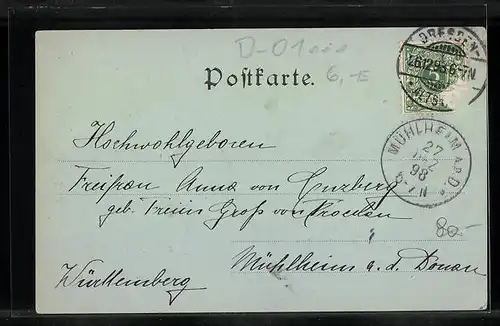 D-01
6,-E
Postkarte.
DRESDEN-
26 12 98 6-7N
ALTST.
MÜHLHEIM A.D.D.
27
DEZ
98
6-7 N
Hochwohlgeboren
Freifrau Anna von Enzberg
geb. Freiin Groß von Trockau
80-
Mühlheim a. d. Donau
Württemberg